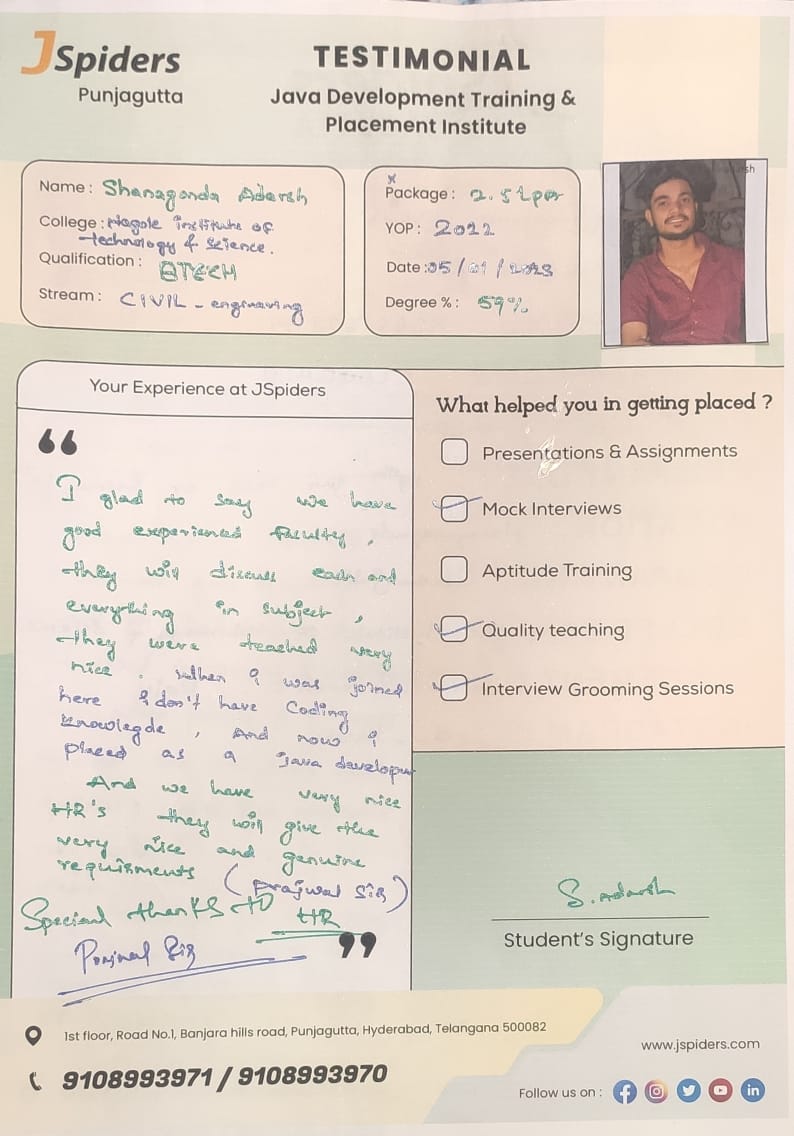 JSpiders
Punjagutta
TESTIMONIAL
Java Development Training &
Placement Institute
Name : Shanaganda Adarsh
College : Nagole institute of
technology & science.
Qualification : BTECH
Stream : CIVIL - enginaring
Package : 2.5 Lpa
YOP : 2022
Date : 05/01/2023
Degree % : 59%
Your Experience at JSpiders
I glad to say we have
good experianed faculty,
they will discuss each and
everything in subject,
They were teached very
nice. when I was joined
here I don't have Coding
knowlegde, And now I
placed as a java developer
And we have very nice
HR's they will give the
very nice and genuine
requisments (prajwal sir)
Special thanks to HR
Prajwal Sir
What helped you in getting placed ?
Presentations & Assignments
Mock Interviews
Aptitude Training
Quality teaching
Interview Grooming Sessions
S. Adarsh
Student's Signature
1st floor, Road No.1, Banjara hills road, Punjagutta, Hyderabad, Telangana 500082
9108993971 / 9108993970
www.jspiders.com
Follow us on :